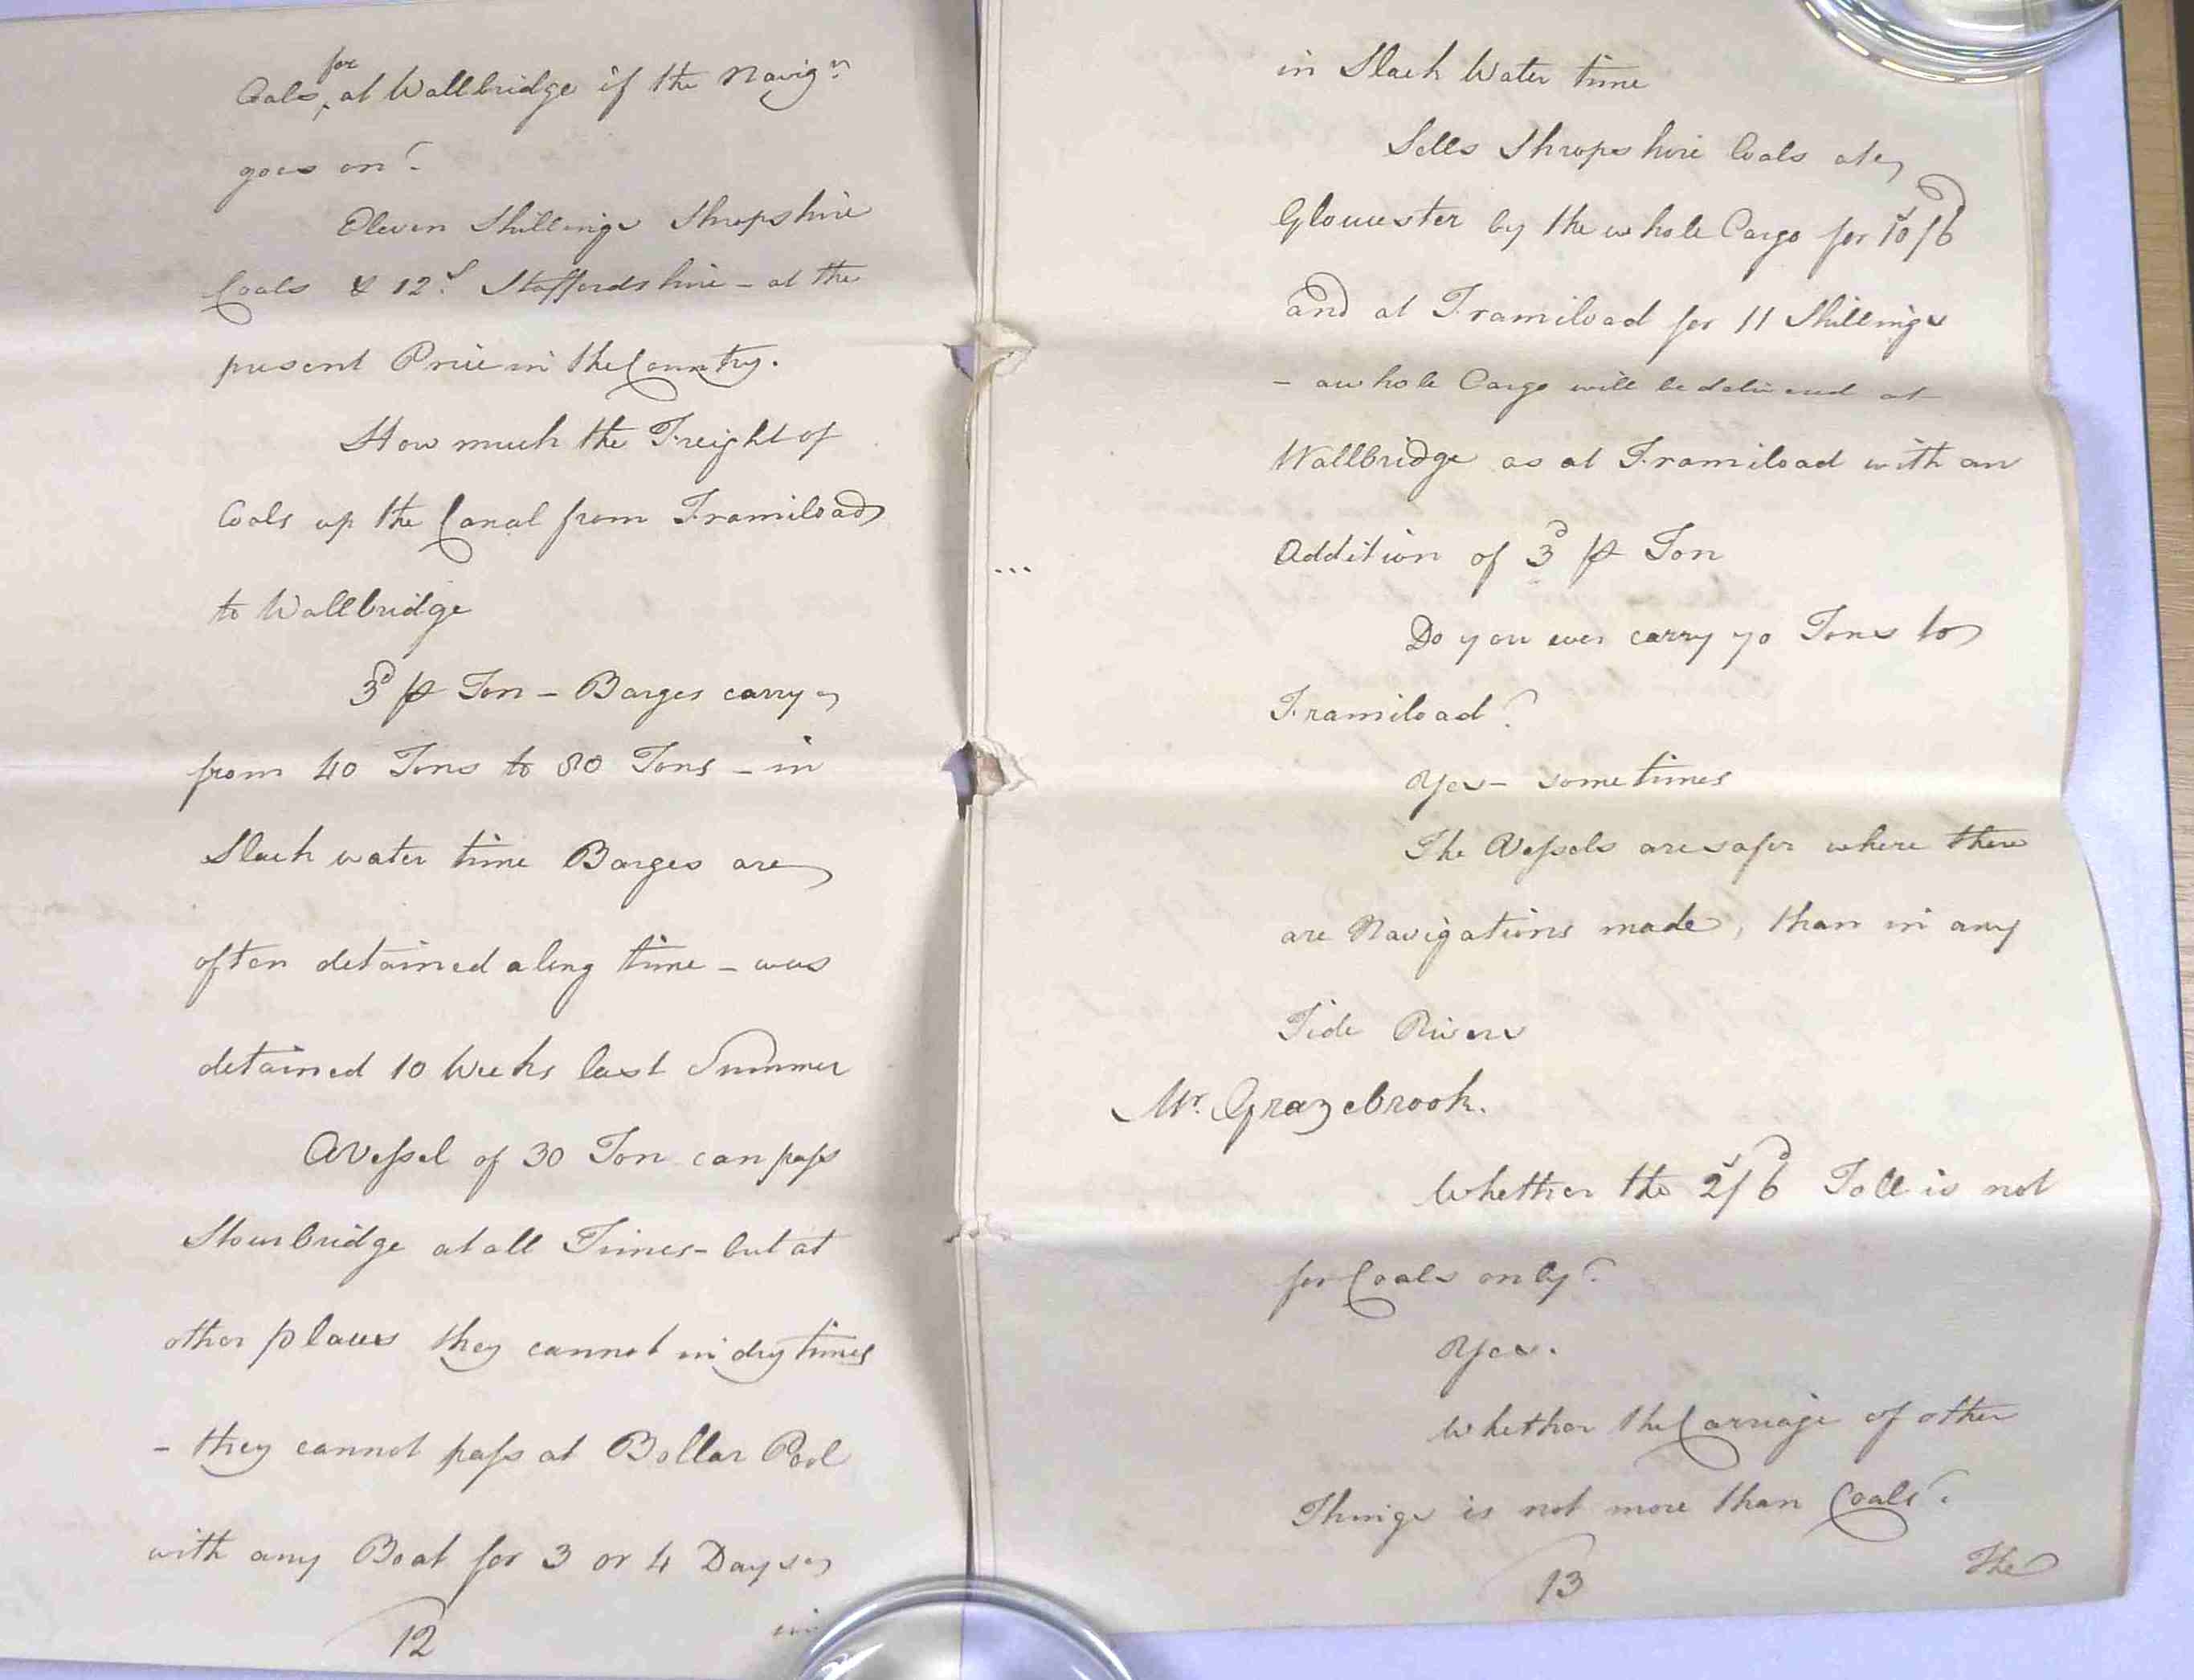 Coals ^for at Wallbridge if the Navig.n
goes on?
Eleven Shillings Shropshire
Coals & 12.s Staffordshire - at the
present Price in the Country.
How much the Freight of
Coals up the Canal from Framiload
to Wallbridge
3d ⅌ Ton - Barges carry
from 40 Tons to 80 Tons - in
Slack water time Barges are
often detained along time - was
detained 10 Weeks last Summer
A Vessel of 30 Ton can pass
Stourbridge at all Times - but at
other places they cannot in dry times
- they cannot pass at Bollar Pool
with any Boat for 3 or 4 Days
12
in
in Slack Water time
Sells Shropshire Coals at
Gloucester by the whole Cargo for 10s/6d
and at Framiload for 11 Shillings
- a whole Cargo will be delivered at
Wallbridge as at Framiload with an
Addition of 3d ⅌ Ton
Do you ever carry 70 Tons to
Framiload?
Yes - sometimes
The Vessels are safer where there
are Navigations made, than in any
Tide Rivers
Mr. Grazebrook.
Whether the 2s/6d Toll is not
for Coals only?
Yes.
Whether the Carriage of other
Things is not more than Coals?
13
The